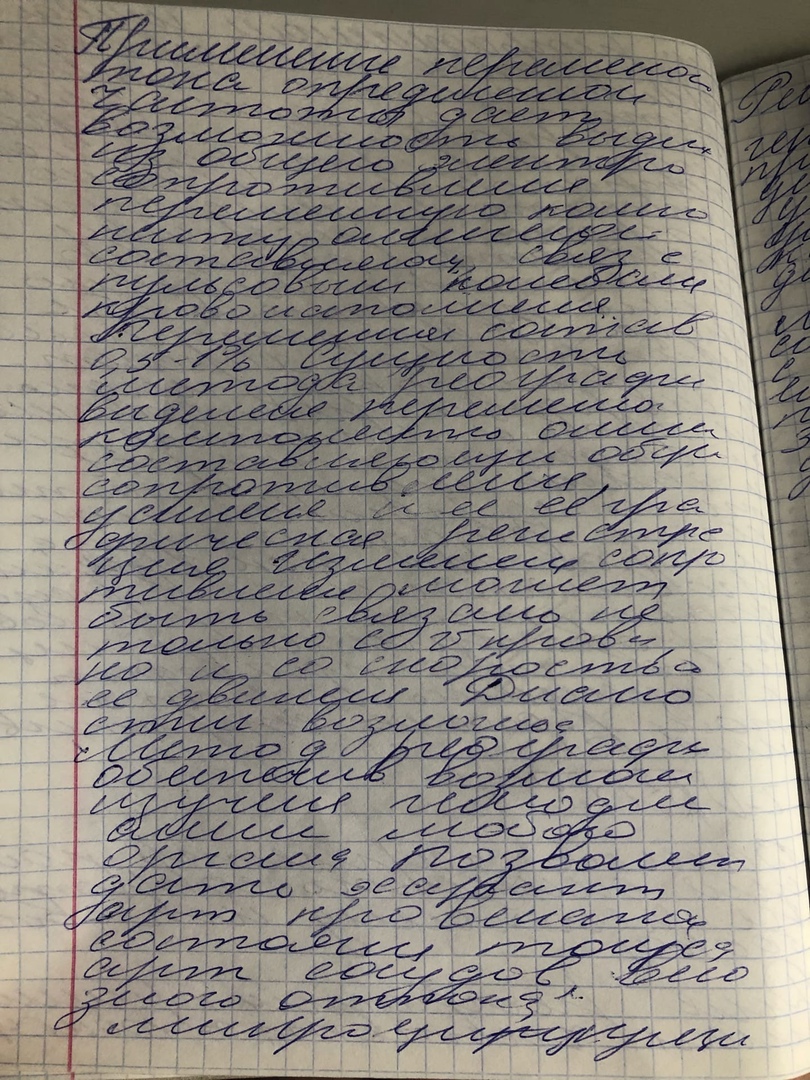 Применение переменой
тока определенной
частоты дает
возможность выдел
из общего электро
сопротивления
переменную компо
ненту
составляющ связ с
пульсовым колебани
кровонаполнения
Переменная состав
0,5-1% Сущность
метода реографи
выделение перемено
компоненты омич
составляющи общи
сопротивления,
усиления и ее гра
фическая регистра
ция Изменени сопр
тивления может
быть связано не
только с кровь
но и со скоростью
ее движения Диагно
стик возможнос
Метод реографи
обеспечив возмож
изучения гемодин
амик любого
органа позволит
дать характ
арт кровенапол
состояни тонуса
арт сосудов вено
зного оттока,
микроциркуляци
Ре